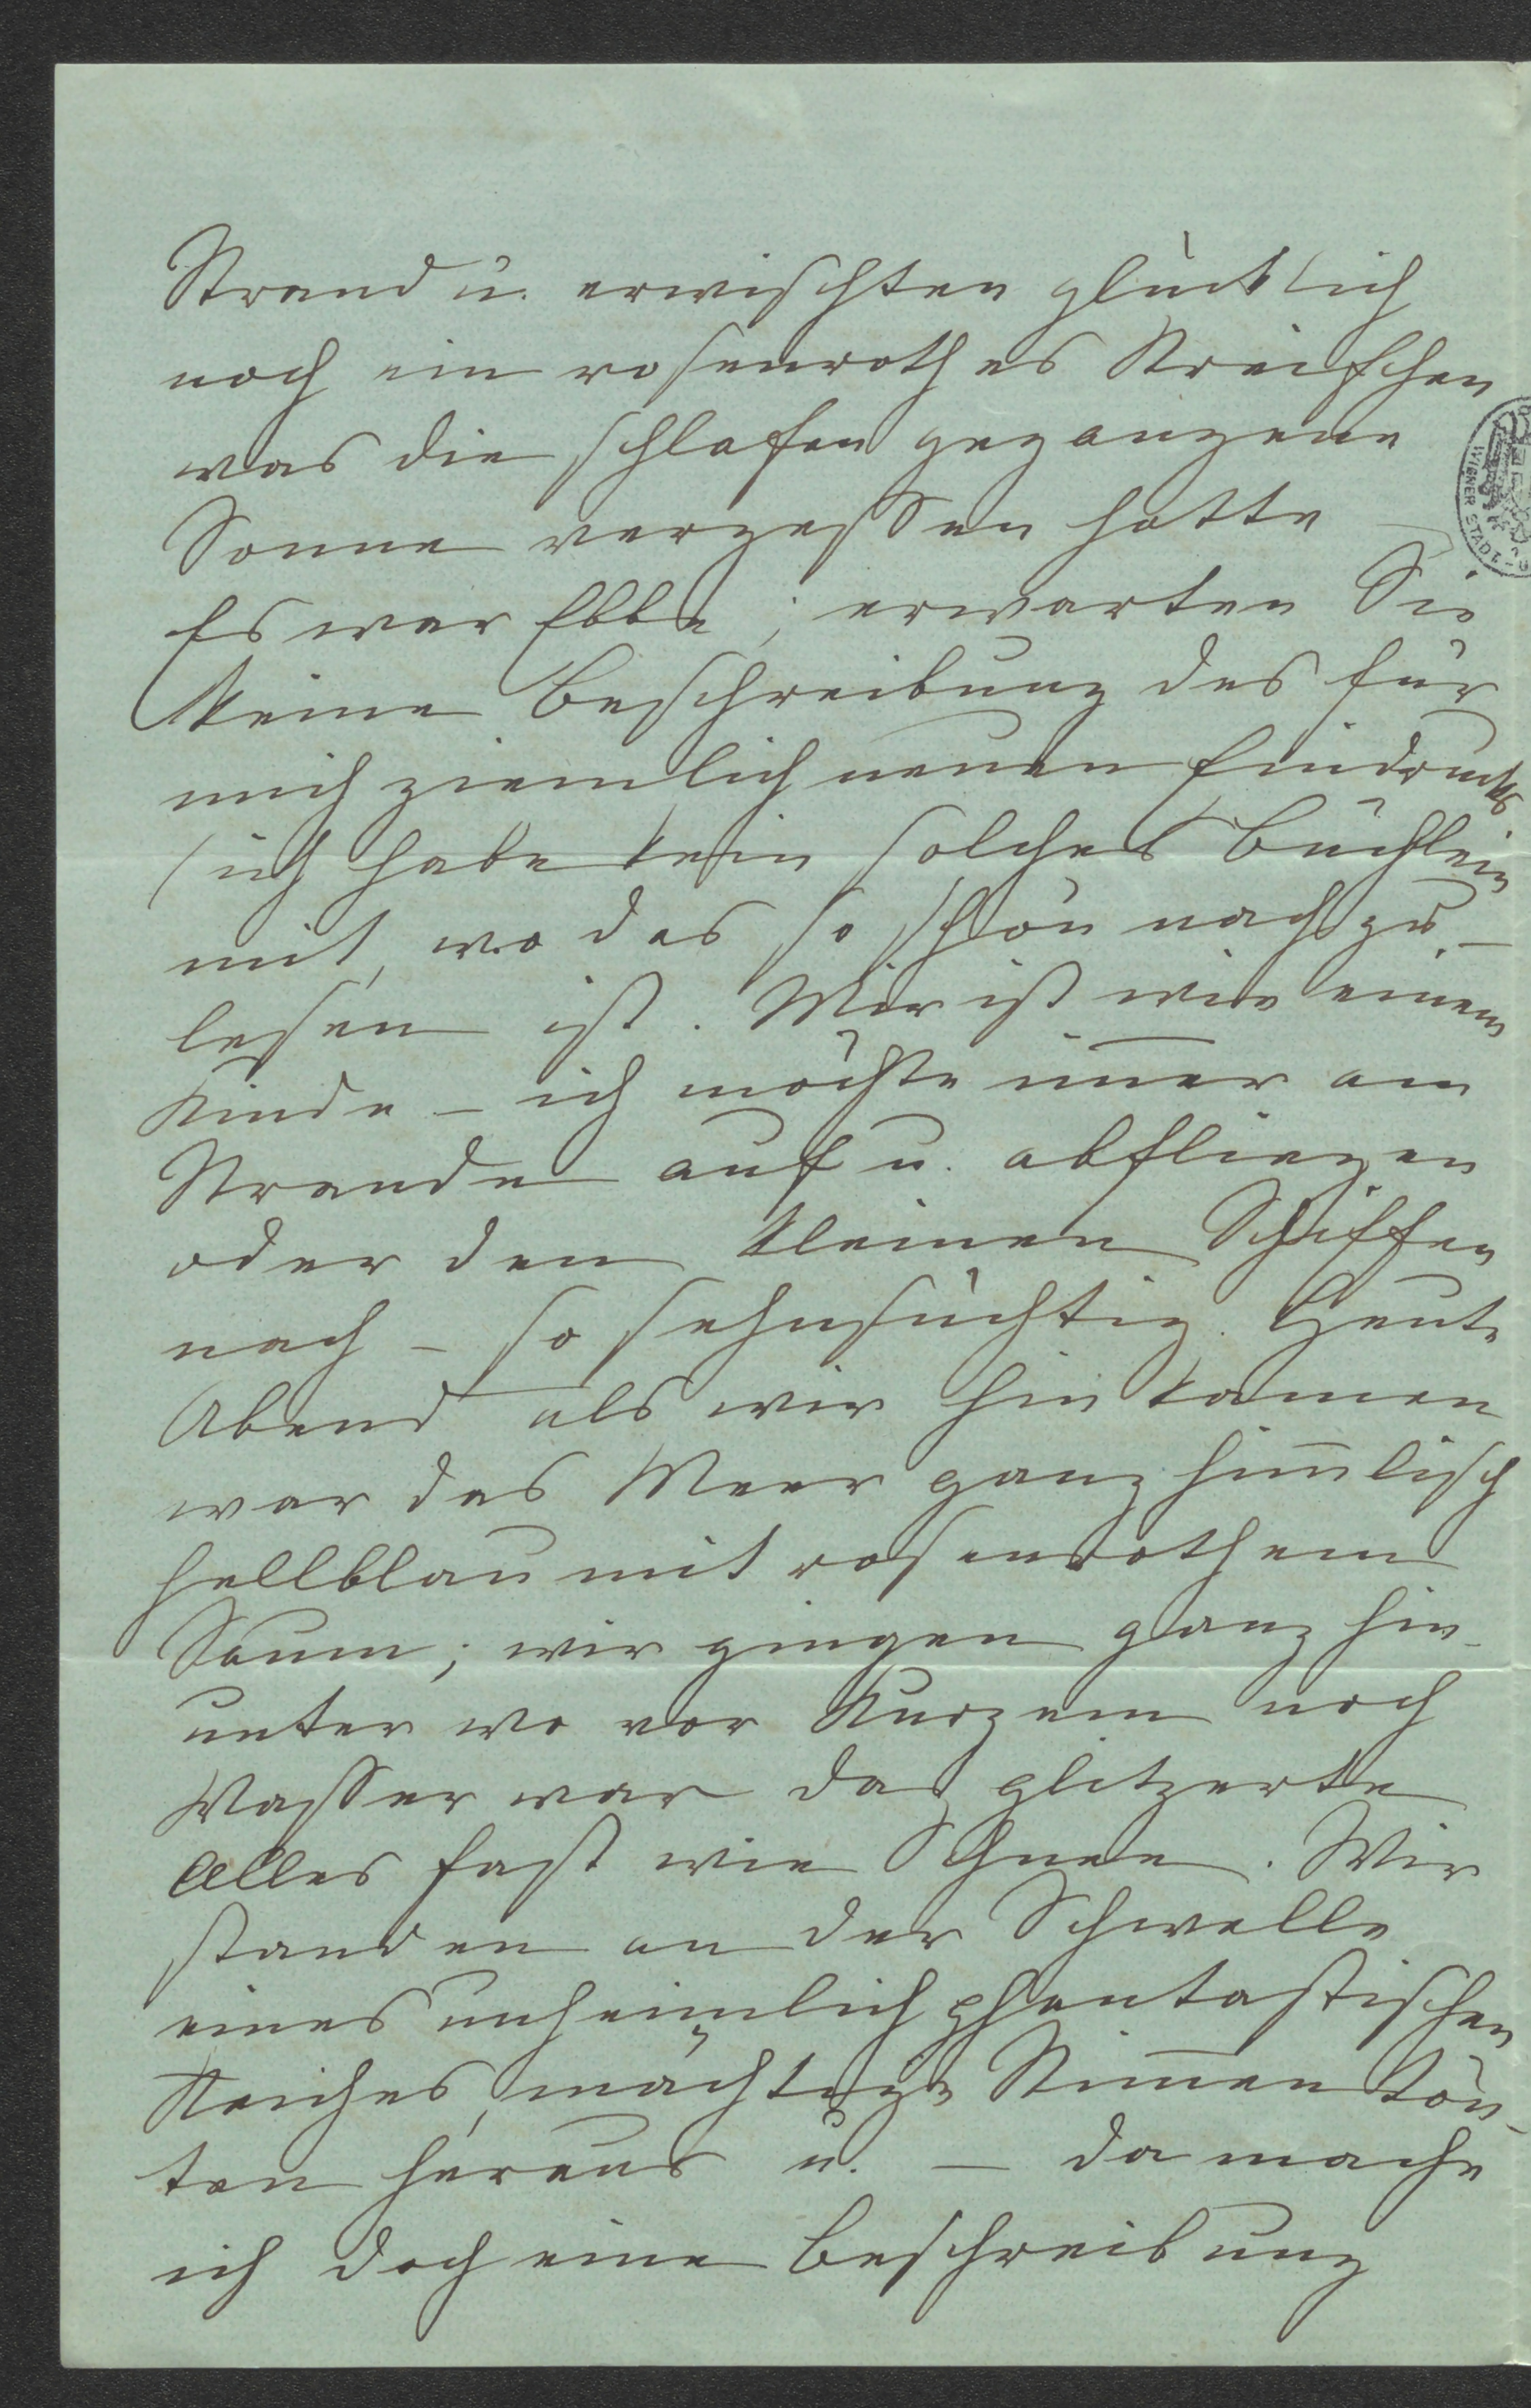 Strand u. erwischten glücklich
noch ein rosenrothes Streifchen
was die schlafen gegangene
Sonne vergessen hatte
Es war Ebbe; erwarten Sie
keine Beschreibung des für
mich ziemlich neuen Eindrucks
(ich habe kein solches Büchlein
mit, wo das so schön nachzu-
lesen ist. Mir ist wie einem
Kinde – ich möchte im̅er am
Strande auf u. abfliegen
oder den kleinen Schiffen
nach – so sehnsüchtig. Heute
Abend als wir hinkamen
war das Meer ganz him̅lisch
hellblau mit rosenrothem
Saum; wir gingen ganz hin-
unter wo vor Kurzem noch
Wasser war das glitzerte
Alles fast wie Schnee. Wir
standen an der Schwelle
eines unheimlich phantastischen
Reiches, mächtige Stim̅en tön-
ten heraus u. – da mache
ich doch eine Beschreibung
WIENER STADT-